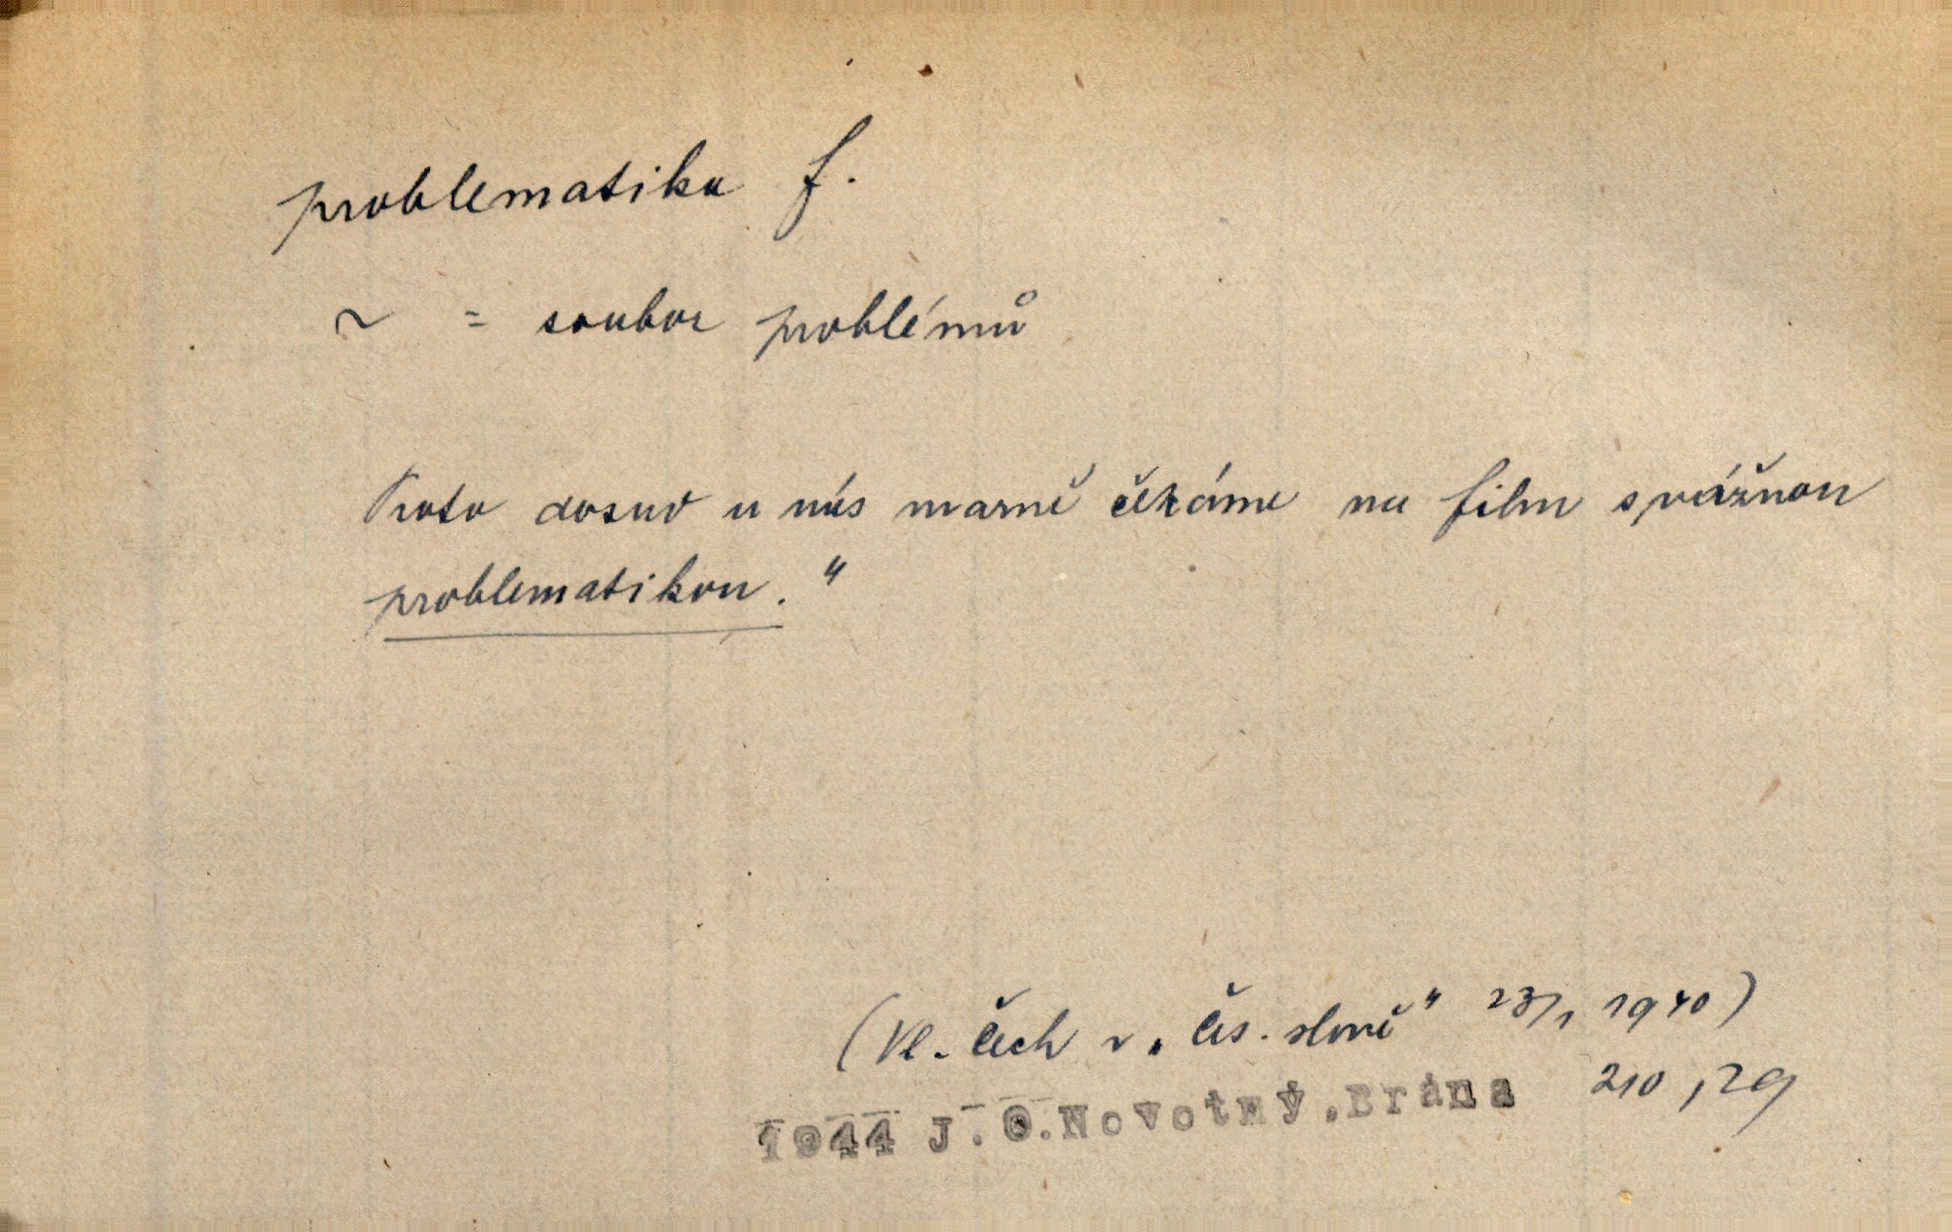 problematika f.
~ = soubor problémů
Proto dosud u nás marně čekáme na film s vážnou
problematikou."
(Vl. Čech v „Čes. slově" 23/1 1940)
1944 J.O.Novotný,Brána 210,29